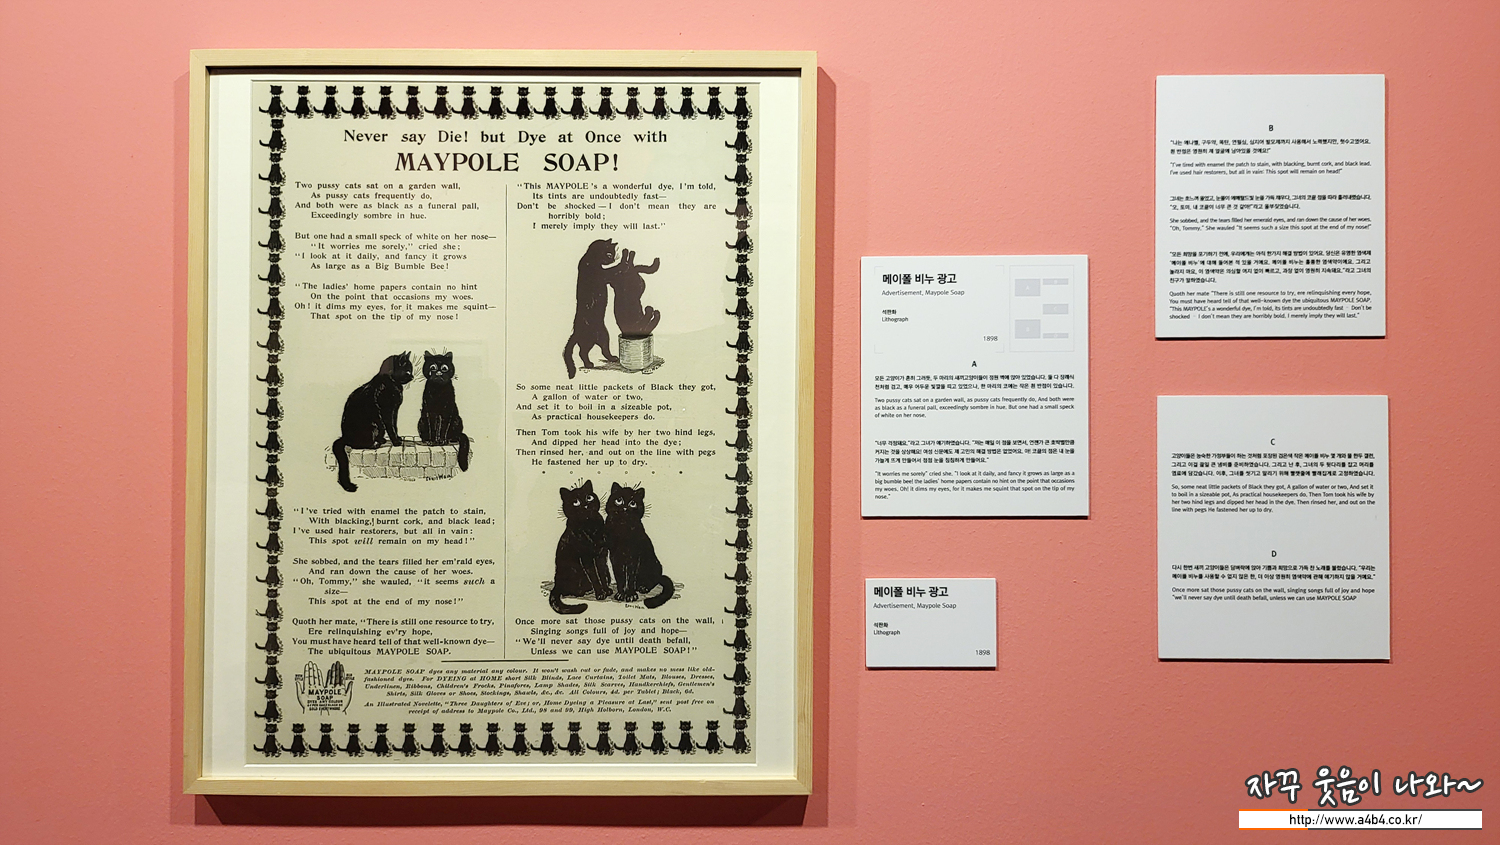 Never say Die! but Dye at Once with
MAYPOLE SOAP!
Two pussy cats sat on a garden wall,
As pussy cats frequently do,
And both were as black as a funeral pall,
Exceedingly sombre in hue.
But one had a small speck of white on her nose—
"It worries me sorely," cried she;
"I look at it daily, and fancy it grows
As large as a Big Bumble Bee!
"The ladies' home papers contain no hint
On the point that occasions my woes.
Oh! it dims my eyes, for it makes me squint—
That spot on the tip of my nose!
"I've tried with enamel the patch to stain,
With blacking, burnt cork, and black lead;
I've used hair restorers, but all in vain:
This spot will remain on my head!"
She sobbed, and the tears filled her em'rald eyes,
And ran down the cause of her woes.
"Oh, Tommy," she wauled, "it seems such a
size—
This spot at the end of my nose!"
Quoth her mate, "There is still one resource to try,
Ere relinquishing ev'ry hope,
You must have heard tell of that well-known dye—
The ubiquitous MAYPOLE SOAP.
"This MAYPOLE's a wonderful dye, I'm told,
Its tints are undoubtedly fast—
Don't be shocked—I don't mean they are
horribly bold;
I merely imply they will last."
So some neat little packets of Black they got,
A gallon of water or two,
And set it to boil in a sizeable pot,
As practical housekeepers do.
Then Tom took his wife by her two hind legs,
And dipped her head into the dye;
Then rinsed her, and out on the line with pegs
He fastened her up to dry.
Once more sat those pussy cats on the wall,
Singing songs full of joy and hope—
"We'll never say dye until death befall,
Unless we can use MAYPOLE SOAP!"
MAYPOLE
SOAP
MAYPOLE SOAP dyes any material any colour. It won't wash out or fade, and makes no mess like old-
fashioned dyes. For DYEING at HOME short Silk Blinds, Lace Curtains, Toilet Mats, Blouses, Dresses,
Underlinen, Ribbons, Children's Frocks, Pinafores, Lamp Shades, Silk Scarves, Handkerchiefs, Gentlemen's
Shirts, Silk Gloves or Shoes, Stockings, Shawls, &c., &c. All Colours, 4d. per Tablet; Black, 6d.
An Illustrated Novelette, "Three Daughters of Eve; or, Home Dyeing a Pleasure at Last," sent post free on
receipt of address to Maypole Co., Ltd., 98 and 99, High Holborn, London, W.C.
메이폴 비누 광고
Advertisement, Maypole Soap
석판화
Lithograph
1898
A
모든 고양이가 흔히 그러듯, 두 마리의 새끼고양이들이 정원 벽에 앉아 있었습니다. 둘 다 장례식
천처럼 검고, 매우 어두운 빛깔을 띠고 있었으나, 한 마리의 코에는 작은 흰 반점이 있습니다.
Two pussy cats sat on a garden wall, as pussy cats frequently do, And both were
as black as a funeral pall, exceedingly sombre in hue. But one had a small speck
of white on her nose,
"너무 걱정돼요."라고 그녀가 얘기하였습니다. "저는 매일 이 점을 보면서, 언젠가 큰 호박벌만큼
커지는 것을 상상해요! 여성 신문에도 제 고민의 해결 방법은 없었어요. 아! 코끝의 점은 내 눈을
가늘게 뜨게 만들어서 점점 눈을 침침하게 만들어요."
"It worries me sorely" cried she, "I look at it daily, and fancy it grows as large as a
big bumble bee! the ladies' home papers contain no hint on the point that occasions
my woes, Oh! it dims my eyes, for it makes me squint that spot on the tip of my
nose."
메이폴 비누 광고
Advertisement, Maypole Soap
석판화
Lithograph
1898
B
"나는 에나멜, 구두약, 흑탄, 연필심, 심지어 발모제까지 사용해서 노력했지만, 헛수고였어요.
흰 반점은 영원히 제 얼굴에 남아있을 것예요!"
"I've tired with enamel the patch to stain, with blacking, burnt cork, and black lead.
I've used hair restorers, but all in vain: This spot will remain on head!"
그녀는 흐느껴 울었고, 눈물이 에메랄드빛 눈을 가득 채우다, 그녀의 코끝 점을 따라 흘러내렸습니다.
"오, 토미, 내 코끝이 너무 큰 것 같아!"라고 울부짖었습니다.
She sobbed, and the tears filled her emerald eyes, and ran down the cause of her woes,
"Oh, Tommy," She wauled "It seems such a size this spot at the end of my nose!"
"모든 희망을 포기하기 전에, 우리에게는 아직 한가지 해결 방법이 있어요. 당신은 유명한 염색제
'메이폴 비누'에 대해 들어본 적 있을 거예요. 메이폴 비누는 훌륭한 염색약이에요, 그리고
놀라지 마요, 이 염색약은 의심할 여지 없이 빠르고, 과장 없이 영원히 지속돼요."라고 그녀의
친구가 말하였습니다.
Quoth her mate "There is still one resource to try, ere relinquishing every hope,
You must have heard tell of that well-known dye the ubiquitous MAYPOLE SOAP,
"This MAYPOLE's a wonderful dye, I'm told, Its tints are undoubtedly fast Don't be
shocked I don't mean they are horribly bold, I merely imply they will last."
C
고양이들은 능숙한 가정부들이 하는 것처럼 포장된 검은색 작은 메이폴 비누 몇 개와 물 한두 갤런,
그리고 이걸 끓일 큰 냄비를 준비하였습니다. 그리고 난 후, 그녀의 두 뒷다리를 잡고 머리를
염료에 담갔습니다. 이후, 그녀를 씻기고 말리기 위해 빨랫줄에 빨래집게로 고정하였습니다.
So, some neat little packets of Black they got, A gallon of water or two, And set it
to boil in a sizeable pot, As practical housekeepers do, Then Tom took his wife by
her two hind legs and dipped her head in the dye, Then rinsed her, and out on the
line with pegs He fastened her up to dry.
D
다시 한번 새끼 고양이들은 담벼락에 앉아 기쁨과 희망으로 가득 찬 노래를 불렀습니다. "우리는
메이폴 비누를 사용할 수 없지 않은 한, 더 이상 영원히 염색약에 관해 얘기하지 않을 거예요."
Once more sat those pussy cats on the wall, singing songs full of joy and hope
"we'll never say dye until death befall, unless we can use MAYPOLE SOAP
자꾸 웃음이 나와~
http://www.a4b4.co.kr/